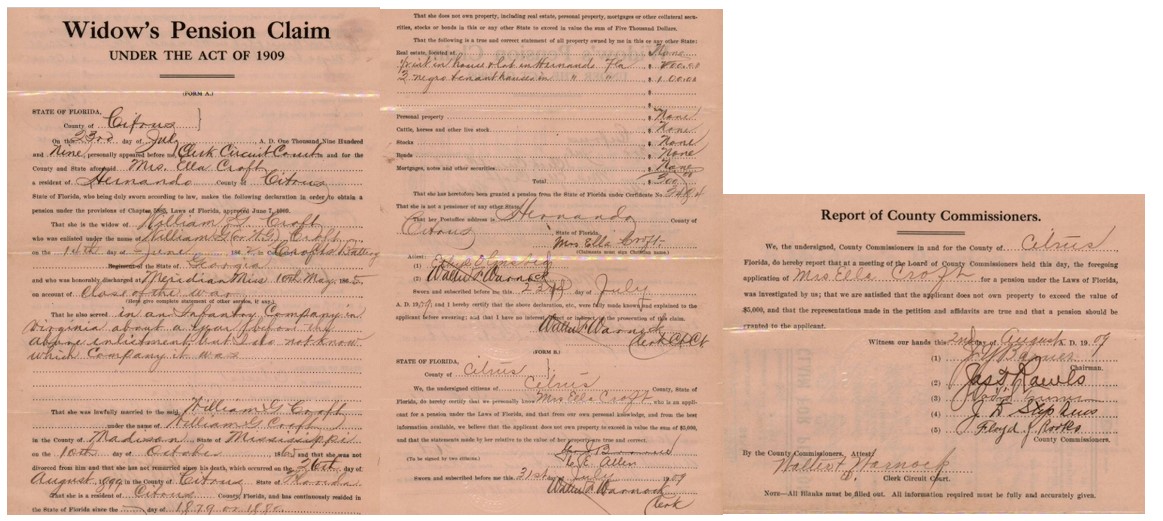 Widow's Pension Claim
UNDER THE ACT OF 1909
(FORM A.)
STATE OF FLORIDA,
County of Citrus
On this 23rd day of July A. D. One Thousand Nine Hundred
and Nine personally appeared before me Clerk Circuit Court and for the
County and State aforesaid Mrs. Ella Croft
a resident of Hernando County of Citrus
State of Florida, who being duly sworn according to law, makes the following declaration in order to obtain a
pension under the provisions of Chapter Laws of Florida, approved June 7, 1909.
That she is the widow of William G. Croft
who was enlisted under the name of William G (or W.G.) Croft
on the 14th day of June 186 in Company Crofts Battery
Regiment of the State of Georgia
and who was honorably discharged at Meridian Miss 10th May 1865,
on account of Close of the war
(Here give commencement of other service, if any.)
That he also served in an Infantry Company in
Virginia about a year before the
above inlistment but I do not know
which Company it was
That she was lawfully married to the said William G Croft
under the name of William G Croft
in the County of Madison State of Mississippi
on the 10th day of October 1865 and that she was not
divorced from him and that she has not remarried since his death, which occurred on the 26th day of
August 1899 in County of Citrus State of Florida
That she is a resident of Citrus County, Florida, and has continuously resided in
the State of Florida since the day of 1879 or 1880
That she does not own property, including real estate, personal property, mortgages or other collateral secu-
rities, stocks or bonds in this or any other State to exceed in value the sum of Five Thousand Dollars.
That the following is a true and correct statement of all property owned by me in this or any other State:
Real estate, located of $ None
int in house & lot in Hernando Fla $
2 negro tenant houses in " " $ 100.00
$
$
Personal property $ None
Cattle, horses and other live stock $ None
Stocks $ None
Bonds $ None
Mortgages, notes and other securities $ None
Total $
That she has heretofore been granted a pension from the State of Florida under Certificate No.
That she is not a pensioner of any other State.
That her Postoffice address is Hernando County of
Citrus State of Florida.
Mrs Ella Croft
(Claimants must sign Christian name.)
Attest:
(1)
(2) Walter Warnock
Sworn and subscribed before me this 23rd day of July
A. D. 1909, and I hereby certify that the above declaration, etc, were fully made known and explained to the
applicant before swearing; and that I have no interest, direct or indirect, in the prosecution of this claim.
Walter Warnock
Clerk Ct Ct
(FORM B.)
STATE OF FLORIDA,
County of Citrus
We, the undersigned citizens of Citrus County, State of
Florida, do hereby certify that we personally know Mrs Ella Croft who is an appli-
cant for a pension under the Laws of Florida, and that from our own personal knowledge, and from the best
information available, we believe that the applicant does not own property to exceed in value the sum of $5,000,
and that the statements made by her relative to the value of her property are true and correct.
(To be signed by two citizens.)
Allen
Sworn and subscribed before me this 31st day of July 1909
Walter Warnock
Clerk
Report of County Commissioners.
We, the undersigned, County Commissioners in and for the County of Citrus
Florida, do hereby report that at a meeting of the Board of County Commissioners held this day, the foregoing
application of Mrs Ella Croft for a pension under the Laws of Florida,
was investigated by us; that we are satisfied that the applicant does not own property to exceed the value of
$5,000, and that the representations made in the petition and affidavits are true and that a pension should be
granted to the applicant.
Witness our hands this 2nd day August A. D. 1909
(1)
Chairman.
(2) Jas T Rawls
(3)
(4) J. D Stephens
(5) Floyd Rooks
County Commissioners.
By the County Commissioners, Attest:
Walter Warnock
Clerk Circuit Court.
NOTE—All Blanks must be filled out. All information required must be fully and accurately given.